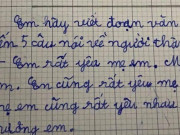 - Em hãy viết đoạn văn
ến 5 câu nói về người thâ
- Em rất yêu mẹ em. M
m. Em cũng rất yêu mẹ
mẹ em cũng rất yêu nhau
hương em.